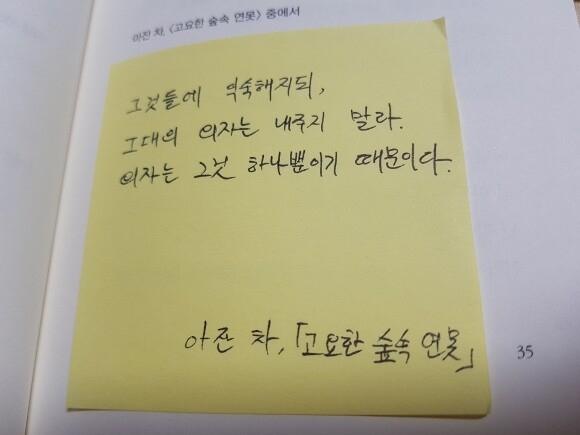 아잔 차, <고요한 숲속 연못> 중에서
그것들에 익숙해지되,
그대의 의자는 내주지 말라.
의자는 그것 하나뿐이기 때문이다.
아잔 차, 「고요한 숲속 연못」
35